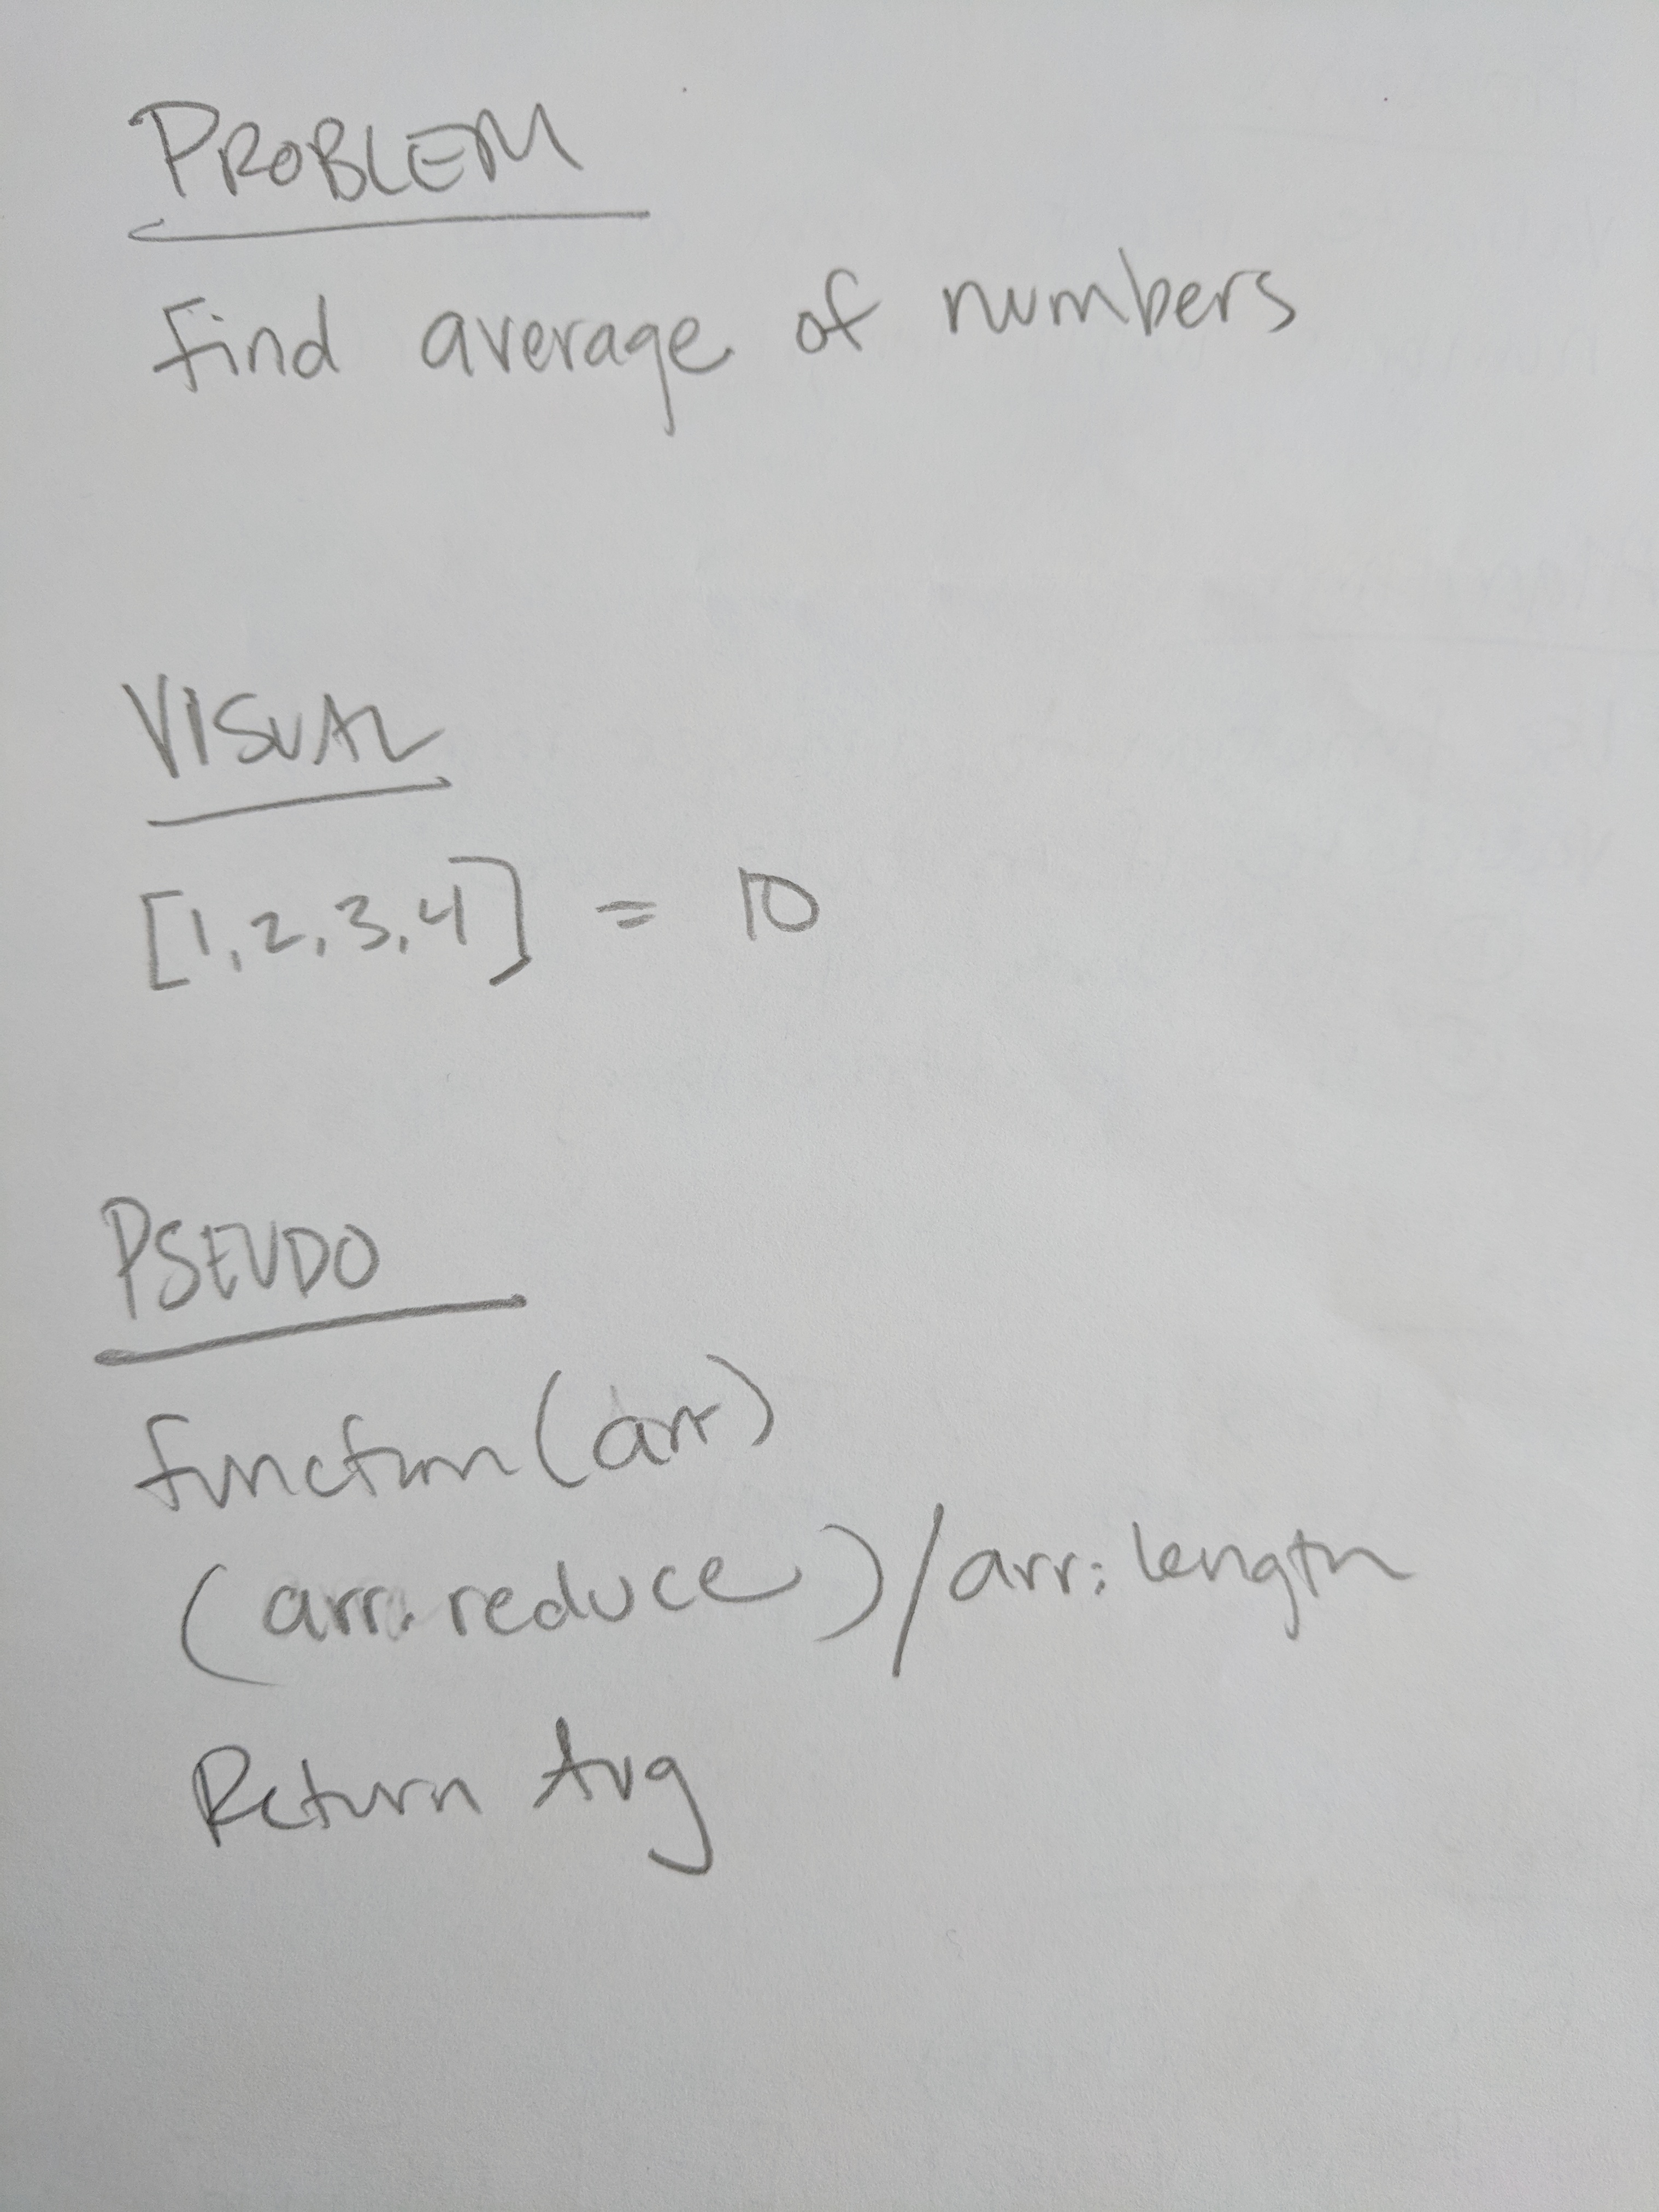 PROBLEM
Find average of numbers
VISUAL
[1,2,3,4] = 10
PSEUDO
function(arr)
(arr.reduce)/arr.length
Return Avg